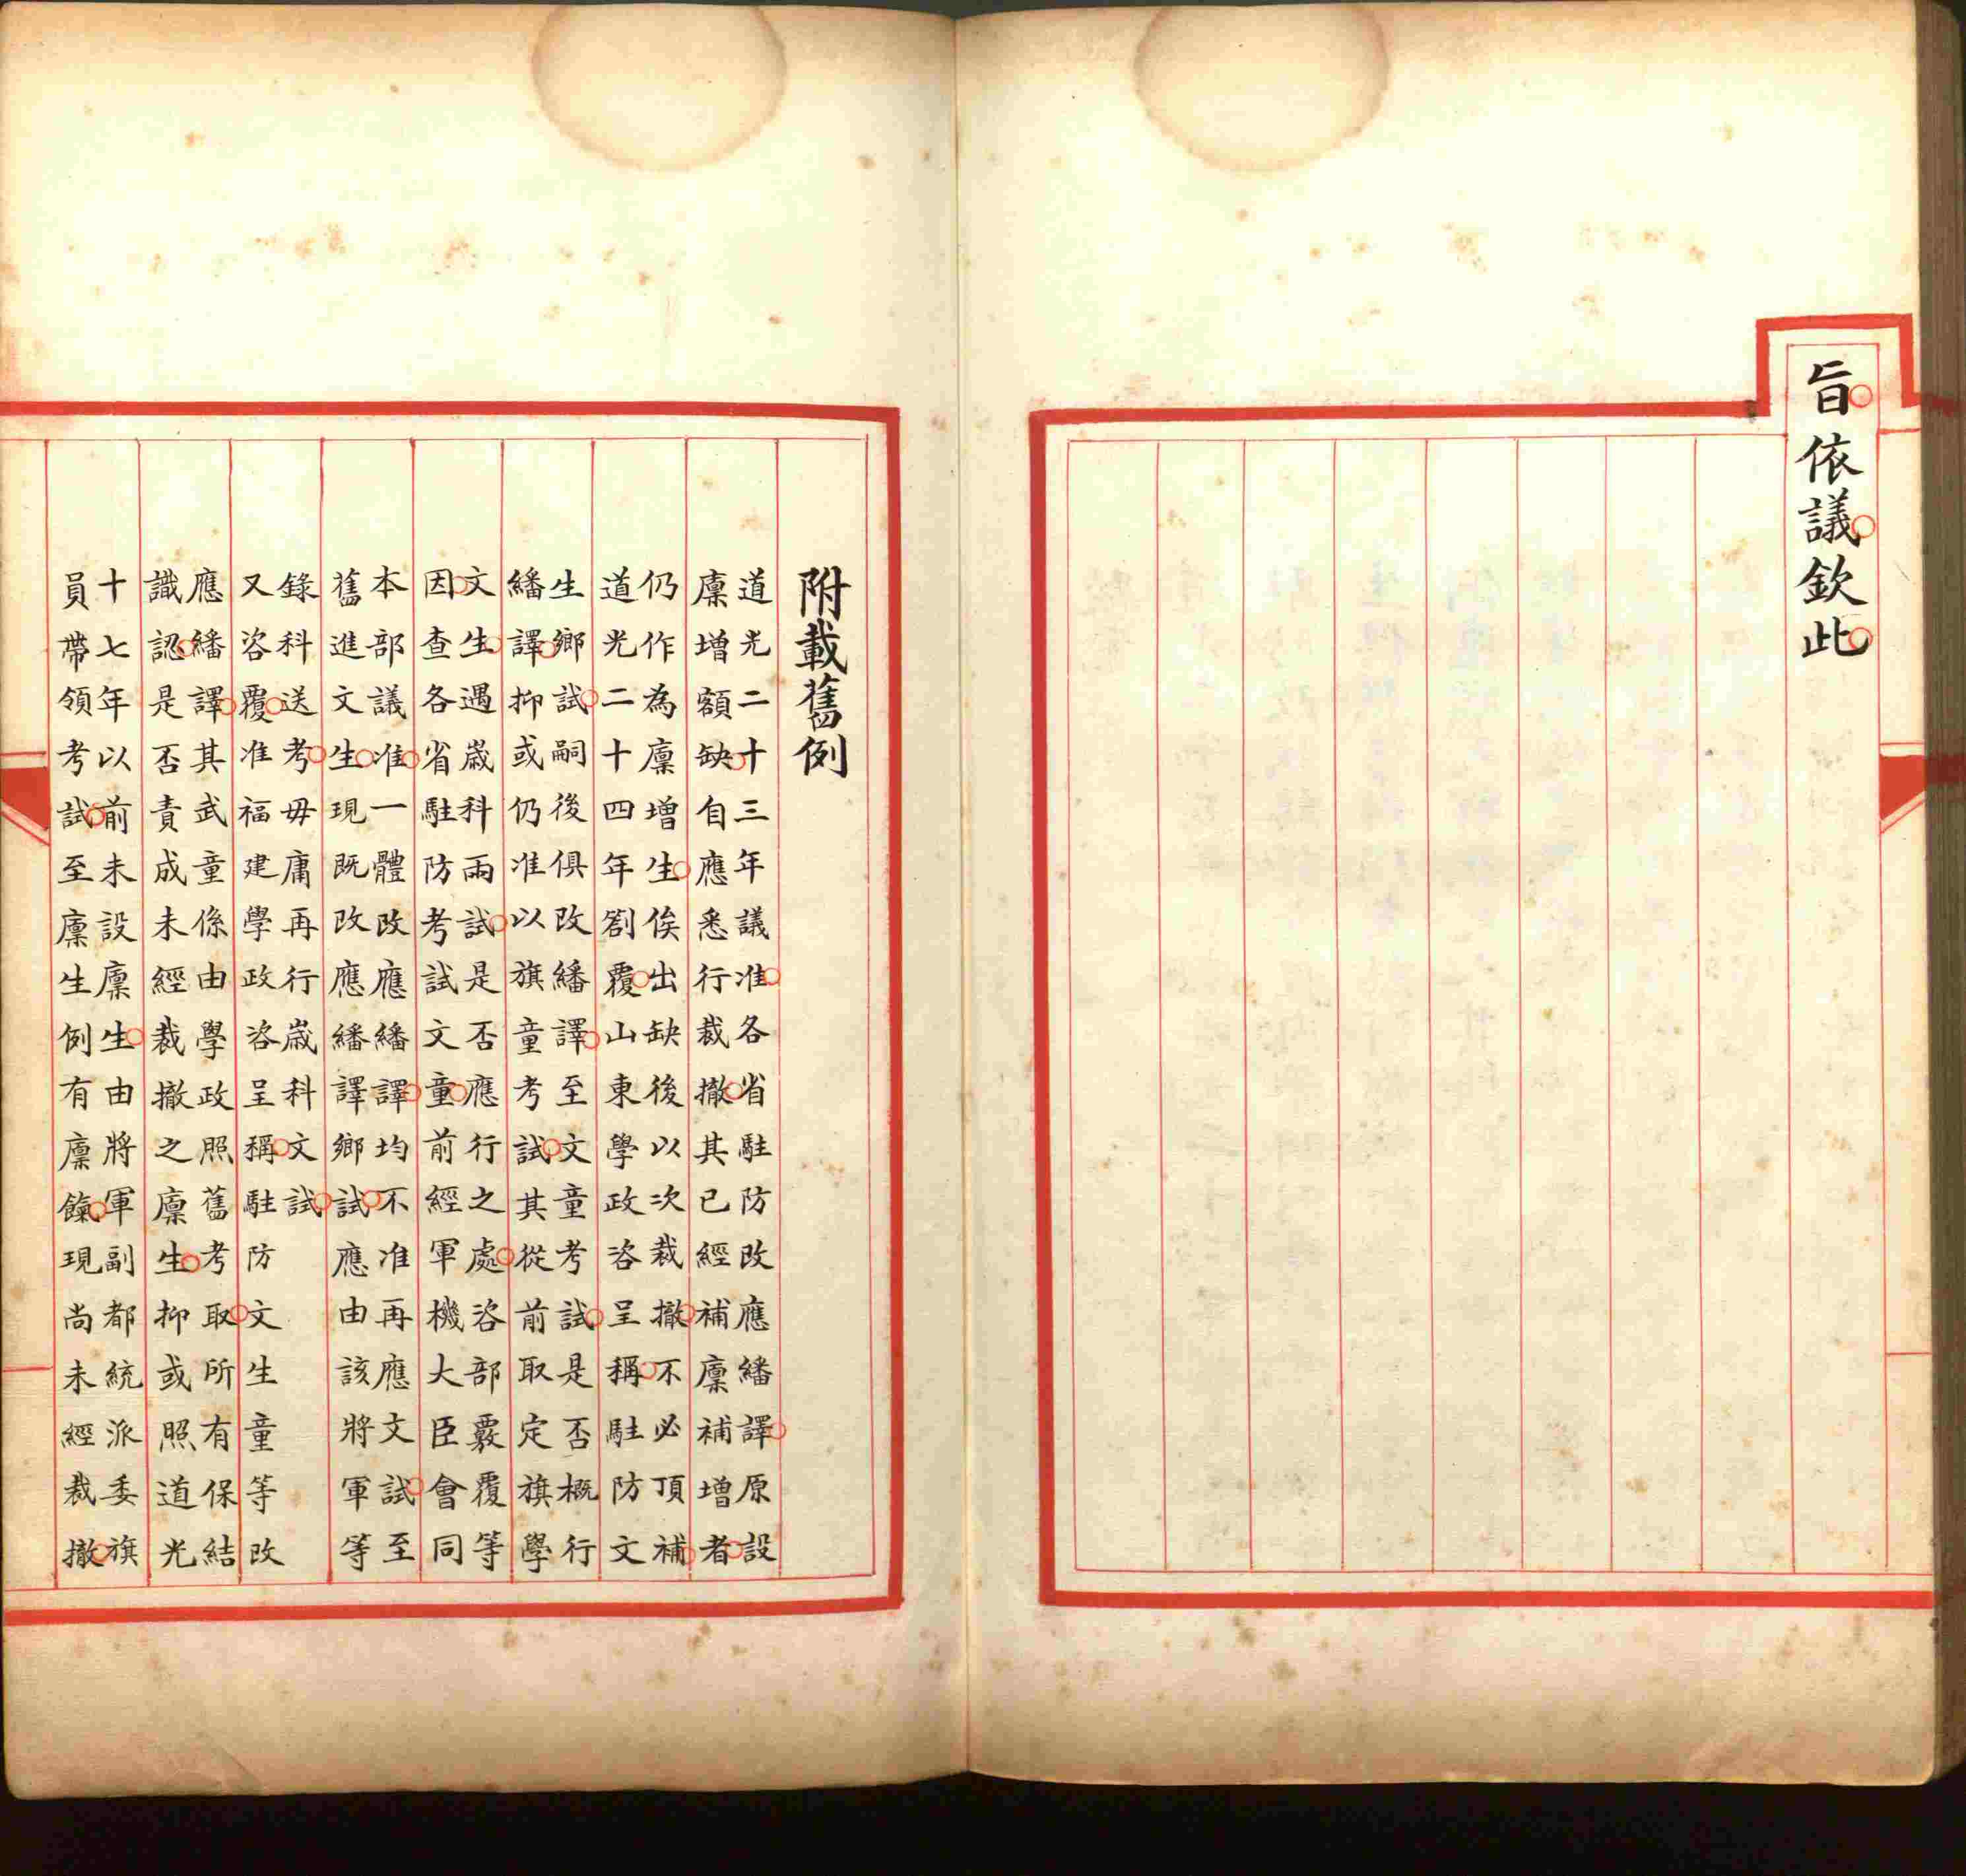 旨依議欽此
附載舊例
道光二十三年議准各省駐防改應繙譯原設
廩增額缺自應悉行裁撤其已經補廩補增者
仍作為廩增生俟出缺後以次裁撤不必頂補
道光二十四年劄覆山東學政咨呈稱駐防文
生鄉試嗣後俱改繙譯至文童考試是否概行
繙譯抑或仍准以旗童考試其從前取定旗學
文生遇嵗科兩試是否應行之處咨部覈覆等
因查各省駐防考試文童前經軍機大臣會同
本部議准一體改應繙譯均不准再應文試至
舊進文生現既改應繙譯鄉試應由該將軍等
錄科送考毋庸再行嵗科文試
又咨覆准福建學政咨呈稱駐防文生童等改
應繙譯其武童係由學政照舊考取所有保結
識認是否責成未經裁撤之廩生抑或照道光
十七年以前未設廩生由將軍副都統派委旗
員帶領考試至廩生例有廩餼現尚未經裁撤